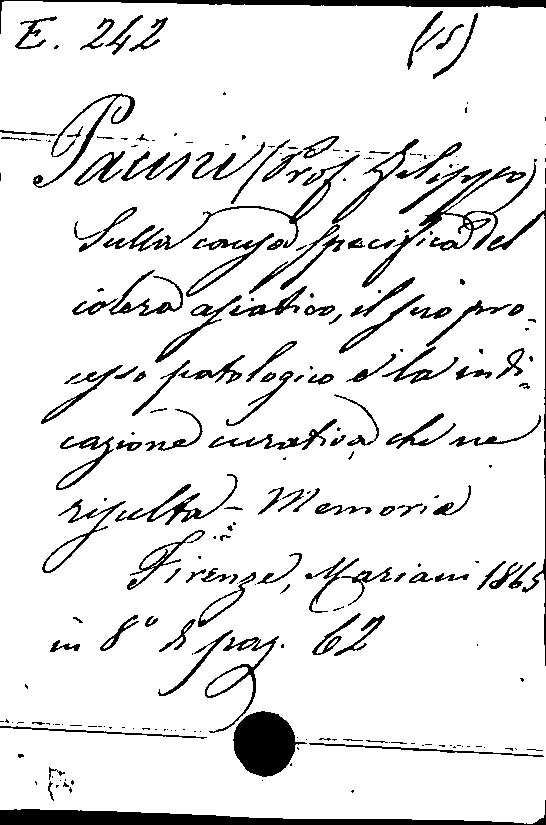 E. 242 (15)
Pacini (Prof. Filippo)
Sulla causa specifica del
colera asiatico, il suo pro-
cesso patologico e la indi-
cazione curativa che ne
risulta - Memoria
Firenze, Mariani 1865
in 8° di pag. 62